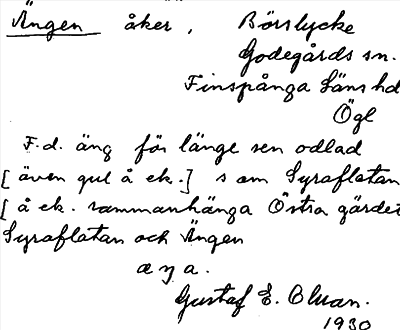 Ängen åker, Börslycke
Godegårds sn.
Finspånga läns hd
Ögl
F.d. äng för länge sen odlad
[även gul å ek.] som Syraflatan
[å ek. sammanhänga Östra gärdet
Syraflatan och Ängen
Gustaf E. Olsson.
1930